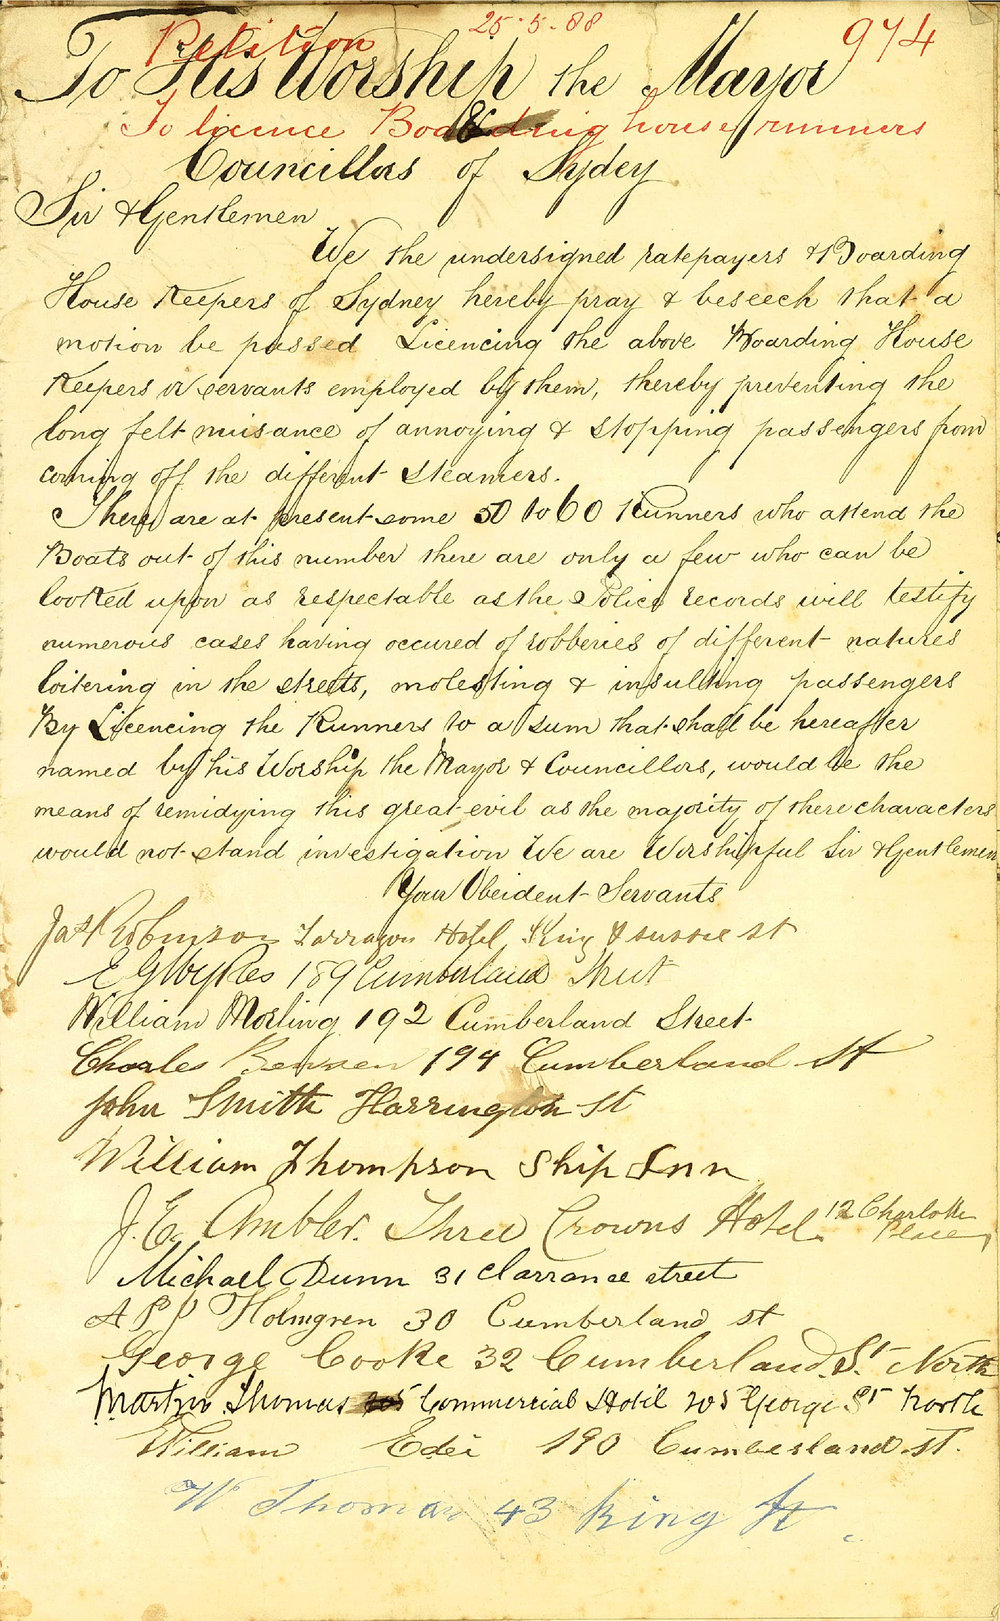 Petition
25-5-88
974
To His Worship the Mayor
To licence Boarding house runners
&
Councillors of Sydey
Sir & Gentlemen
We the undersigned ratepayers & Boarding
House Keepers of Sydney hereby pray & beseech that a
motion be passed Licencing the above Boarding House
Keepers or servants employed by them, thereby preventing the
long felt nuisance of annoying & stopping passengers from
coming off the different steamers.
There are at present some 50 to 60 Runners who attend the
Boats out of this number there are only a few who can be
looked upon as respectable as the Police records will testify
numerous cases having occured of robberies of different natures
loitering in the streets, molesting & insulting passengers
By Licencing the Runners to a sum that shall be hereafter
named by his Worship the Mayor & Councillors, would be the
means of remidying this great evil as the majority of there characters
would not stand investigation We are Worshipful Sir & Gentlemen
Your Obeident Servants
Jas Robinson Tarragon Hotel, King & Sussex st
E G Wykes 189 Cumberland Street
William Morling 192 Cumberland Street
Charles 194 Cumberland St
John Smith Harrington St
William Thompson Ship Inn
J. E. Ambler. Three Crowns Hotel. 12 Charlotte Place,
Michael Dunn 31 Clarrance street
A P J Holmgren 30 Cumberland st
George Cooke 32 Cumberland St North
Martin Thomas Commercial Hotel 205 George St North
William Edei 190 Cumberland St.
W Thomas 43 King St